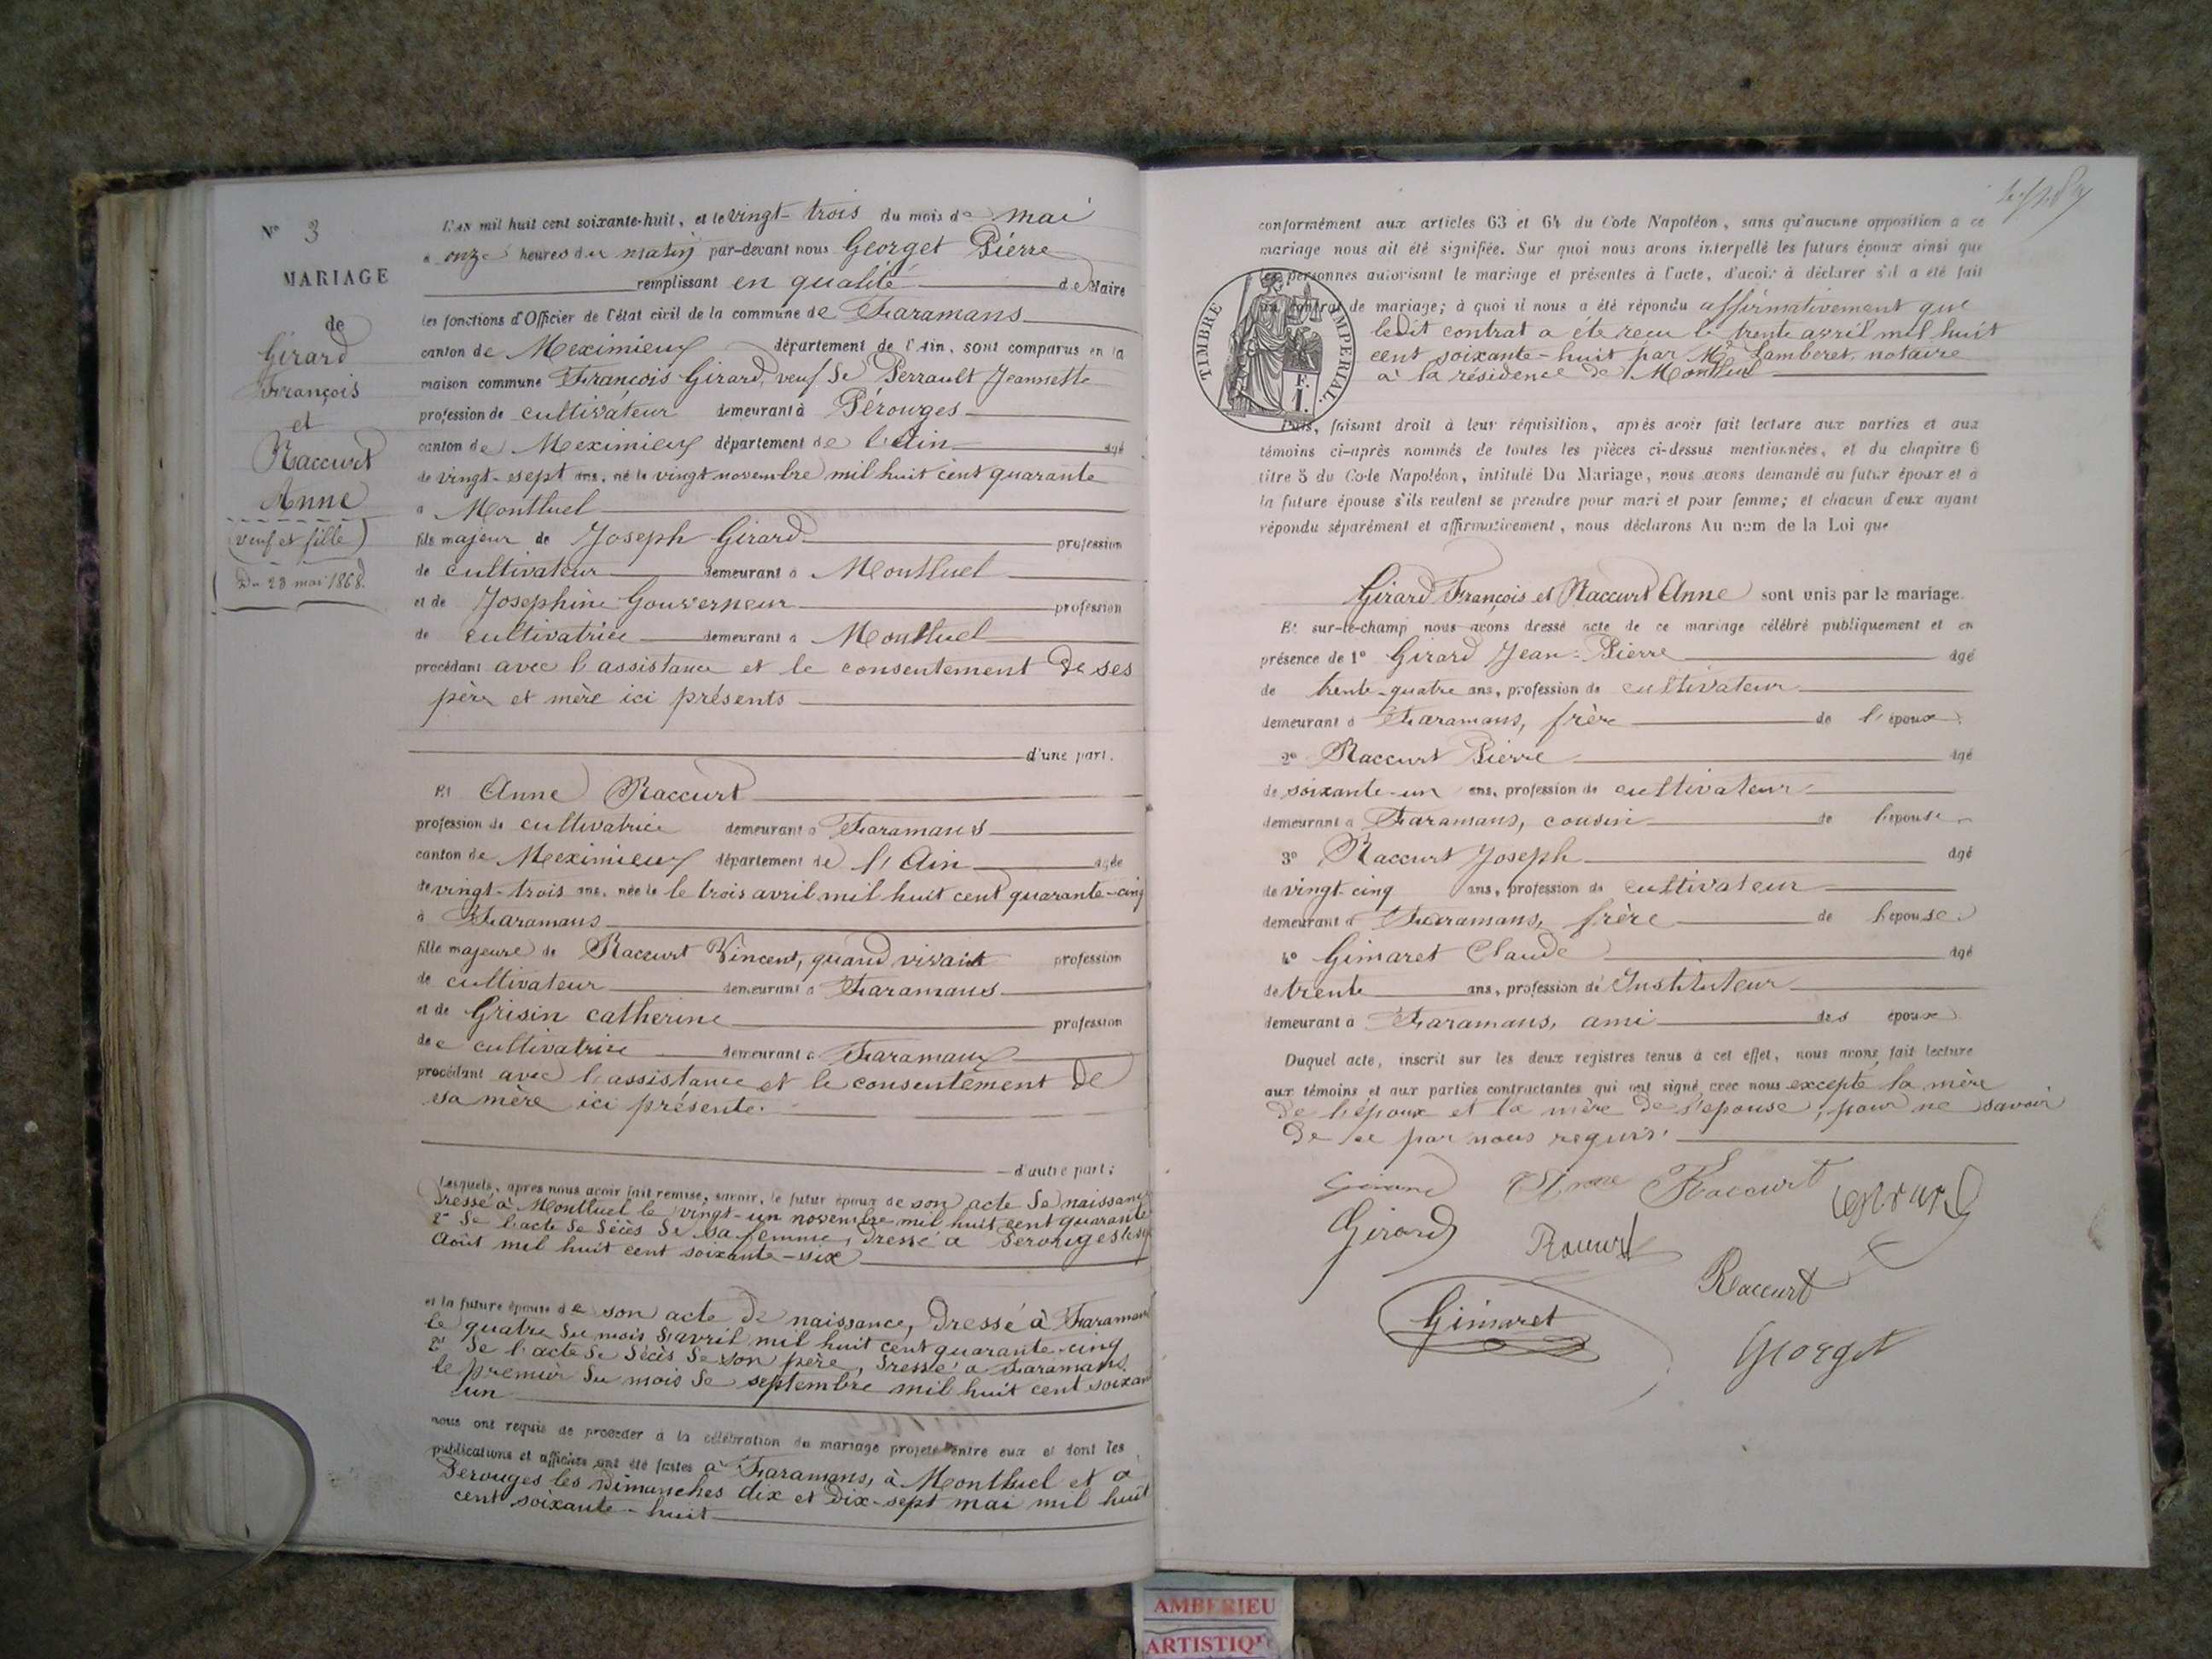 N° 3
MARIAGE
de
Girard
François
et
Raccurt
Anne
(veuf et fille)
Du 23 mai 1868.
L'an mil huit cent soixante-huit, et le vingt-trois du mois de mai
à onze heures du matin par-devant nous Georget Pierre
remplissant en qualité de Maire
les fonctions d'Officier de l'état civil de la commune de Faramans
canton de Meximieux département de l'Ain, sont comparus en la
maison commune François Girard, veuf de Perrault Jeannette
profession de cultivateur demeurant à Pérouges
canton de Meximieux département de l'Ain âgé
de vingt-sept ans, né le vingt novembre mil huit cent quarante
à Montluel
fils majeur de Joseph Girard profession
de cultivateur demeurant à Montluel
et de Josephine Gouverneur profession
de cultivatrice demeurant à Montluel
procédant avec l'assistance et le consentement de ses
père et mère ici présents
d'une part.
Et Anne Raccurt
profession de cultivatrice demeurant à Faramans
canton de Meximieux département de l'Ain âgée
de vingt-trois ans, née le le trois avril mil huit cent quarante-cinq
à Faramans
fille majeure de Raccurt Vincent, quand vivait profession
de cultivateur demeurant à Faramans
et de Grisin Catherine profession
de cultivatrice demeurant à Faramans
procédant avec l'assistance et le consentement de
sa mère ici présente.
d'autre part;
Lesquels, après nous avoir fait remise, savoir, le futur époux de son acte de naissance
dressé à Montluel le vingt-un novembre mil huit cent quarante
2° de l'acte de décès de sa femme, dressé à Perouges
Août mil huit cent soixante-six
et la future épouse de son acte de naissance, dressé à Faramans
le quatre du mois d'avril mil huit cent quarante-cinq
2° de l'acte de décès de son père, dressé à Faramans
le premier du mois de septembre mil huit cent soixan
un
nous ont requis de procéder à la célébration du mariage projeté entre eux et dont les
publications et affiches ont été faites à Faramans, à Montluel et à
Perouges les Dimanches dix et dix-sept mai mil huit
cent soixante-huit
conformément aux articles 63 et 64 du Code Napoléon, sans qu'aucune opposition à ce
mariage nous ait été signifiée. Sur quoi nous avons interpellé les futurs époux ainsi que
les personnes autorisant le mariage et présentes à l'acte, d'avoir à déclarer s'il a été fait
un contrat de mariage; à quoi il nous a été répondu affirmativement que
ledit contrat a été reçu le trente avril mil huit
cent soixante-huit par Me Lamberet, notaire
à la résidence de Montluel
TIMBRE IMPERIAL.
F.
1.
Puis, faisant droit à leur réquisition, après avoir fait lecture aux parties et aux
témoins ci-après nommés de toutes les pièces ci-dessus mentionnées, et du chapitre 6
titre 5 du Code Napoléon, intitulé Du Mariage, nous avons demandé au futur époux et à
la future épouse s'ils veulent se prendre pour mari et pour femme; et chacun d'eux ayant
répondu séparément et affirmativement, nous déclarons Au nom de la Loi que
Girard François et Raccurt Anne sont unis par le mariage.
Et sur-le-champ nous avons dressé acte de ce mariage célébré publiquement et en
présence de 1° Girard Jean-Pierre âgé
de trente-quatre ans, profession de cultivateur
demeurant à Faramans, frère de l'époux.
2° Raccurt Pierre âgé
de soixante-un ans, profession de cultivateur
demeurant à Faramans, cousin de l'épouse
3° Raccurt Joseph âgé
de vingt-cinq ans, profession de cultivateur
demeurant à Faramans, frère de l'épouse.
4° Gimaret Claude âgé
de trente ans, profession de Instituteur
demeurant à Faramans, ami des époux
Duquel acte, inscrit sur les deux registres tenus à cet effet, nous avons fait lecture
aux témoins et aux parties contractantes qui ont signé avec nous excepté la mère
de l'époux et la mère de l'épouse, pour ne savoir
de ce par nous requis.
Anne Raccurt
Girard Raccurt
Raccurt
Gimaret
Georget
AMBERIEU
ARTISTIQUE